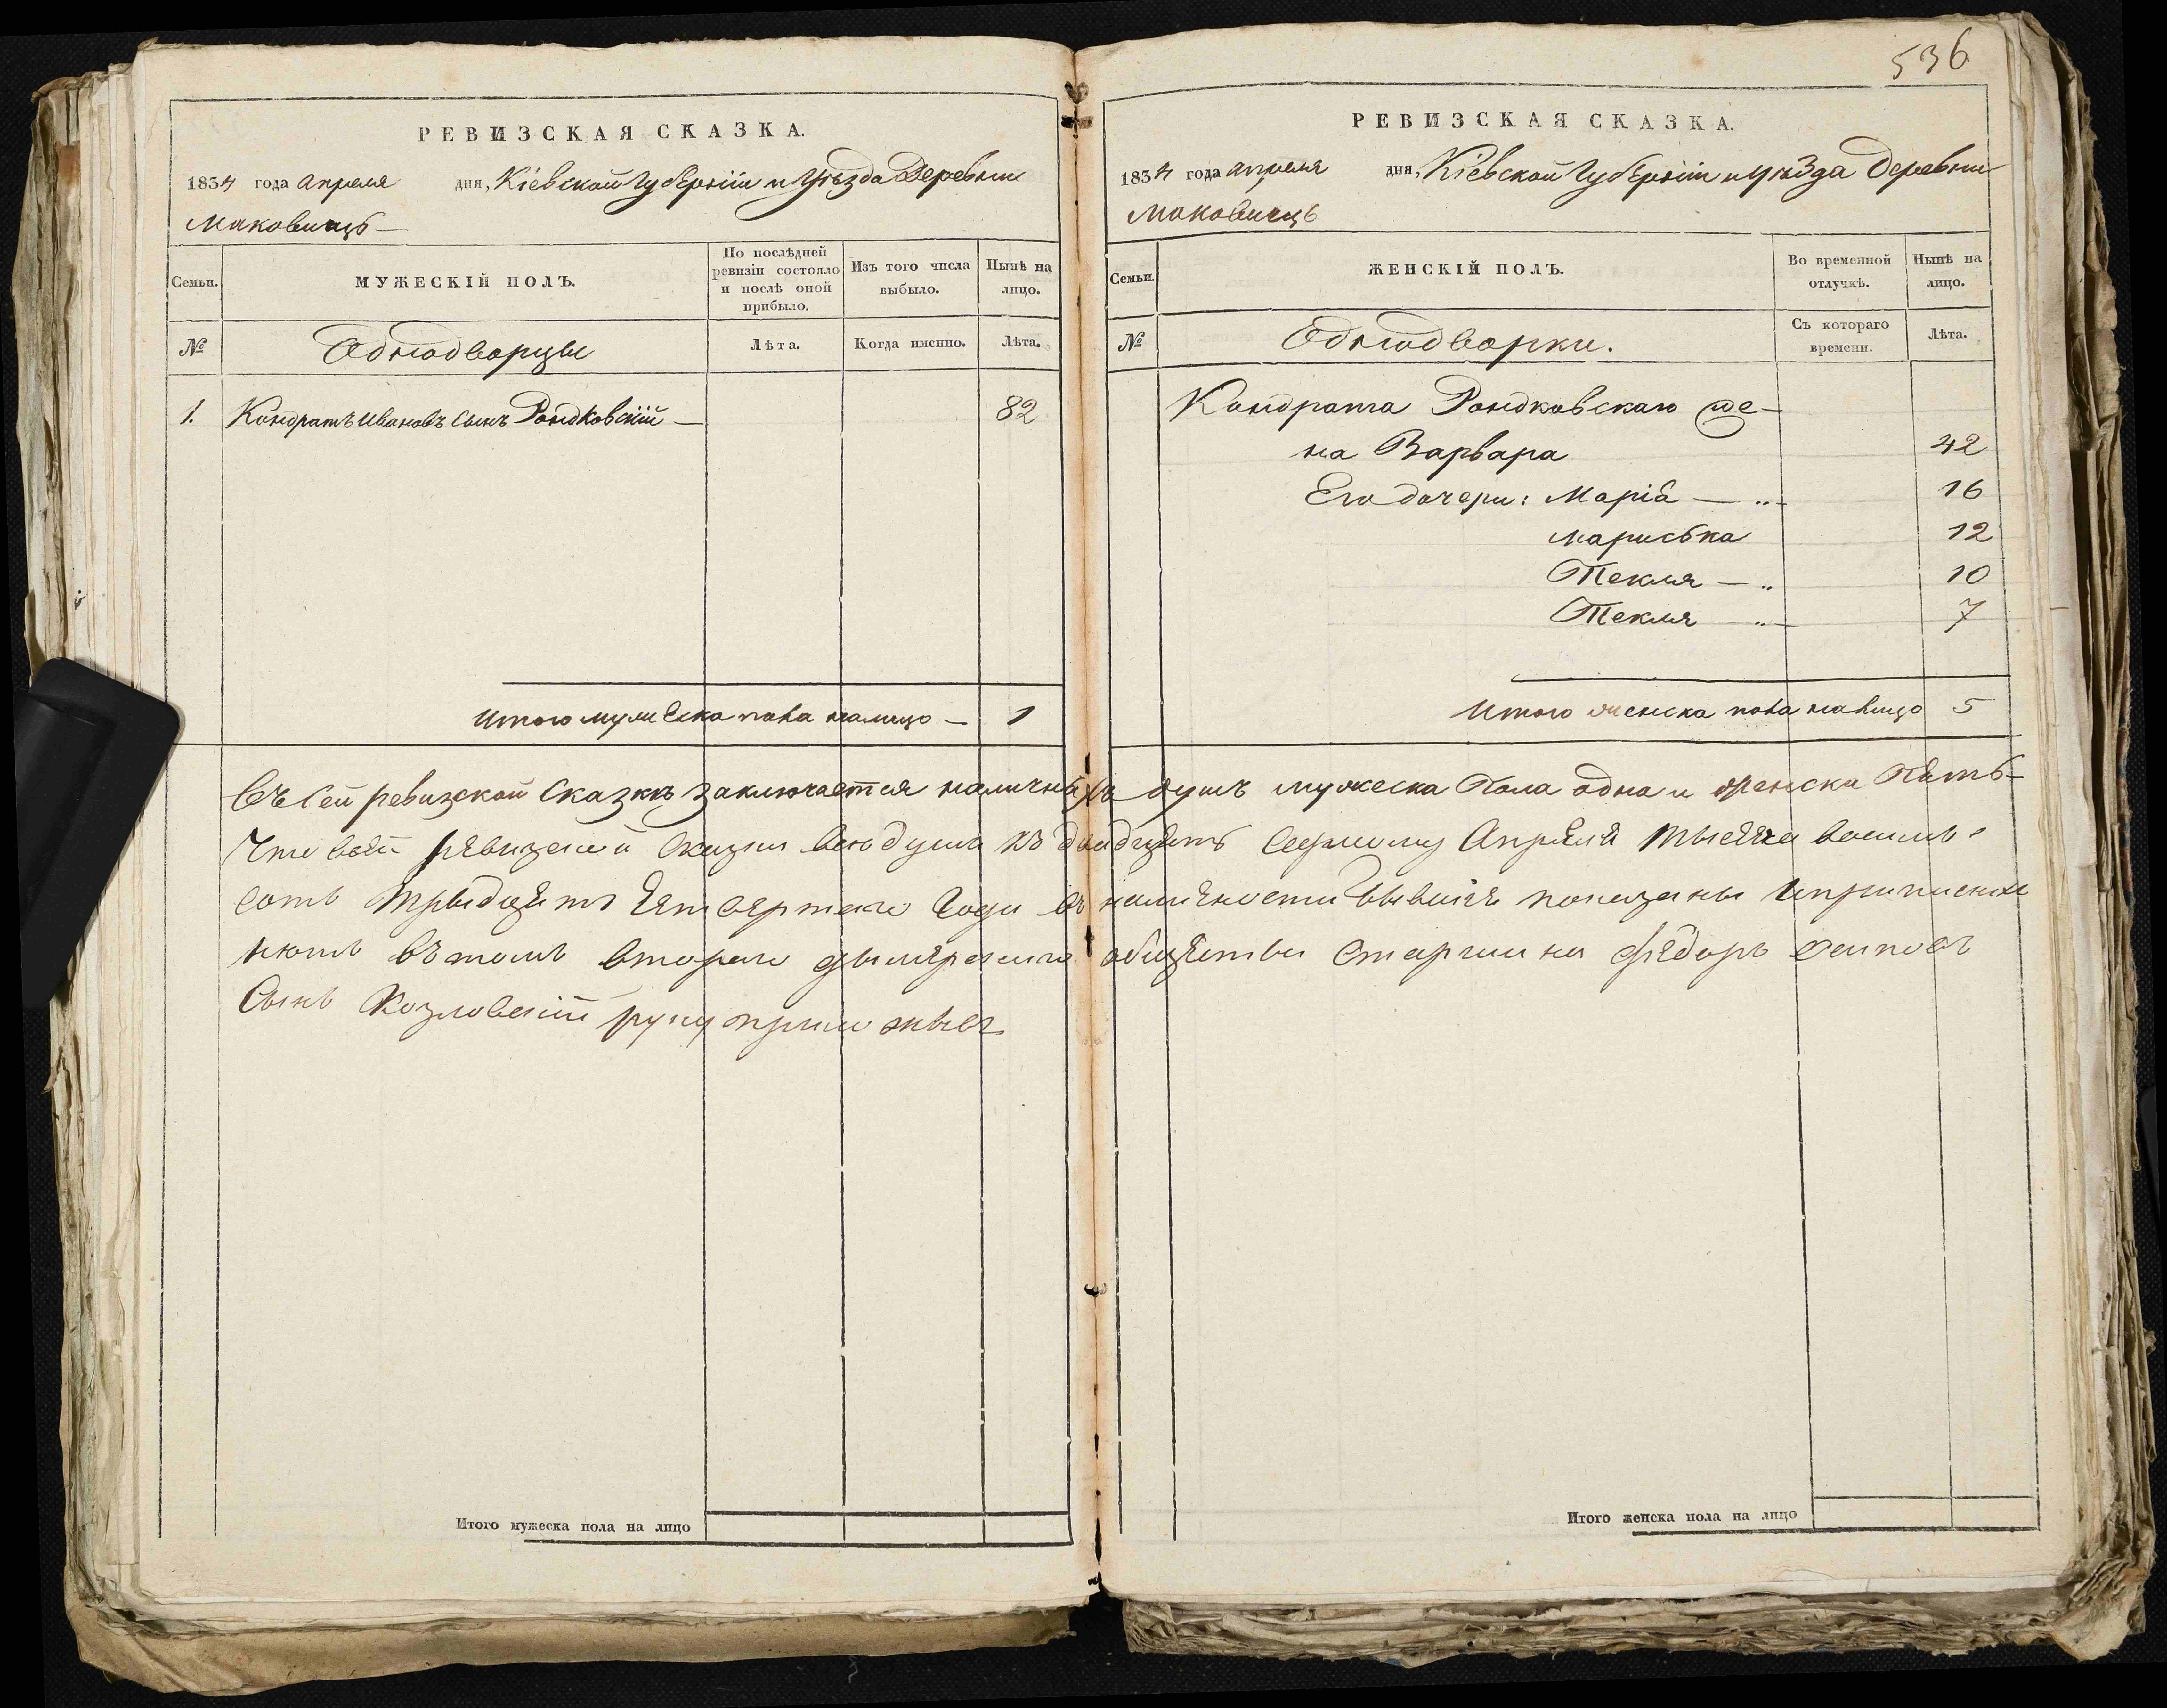 536
РЕВИЗСКАЯ СКАЗКА.
1834 года Апреля дня, Кіевской Губерніи и Уѣзда Деревни
Маковищь —
Семьи.
МУЖЕСКІЙ ПОЛЪ.
По послѣдней ревизіи состояло и послѣ оной прибыло.
Изъ того числа выбыло.
Нынѣ на лицо.
№
Однодворцы
Лѣта.
Когда именно.
Лѣта.
1. Кондратъ Ивановъ Сынъ Рондковскій — 82
Итого мужеска пола налицо — 1
РЕВИЗСКАЯ СКАЗКА.
1834 года апреля дня, Кіевской Губерніи и уѣзда Деревни
Маковищь
Семьи.
ЖЕНСКІЙ ПОЛЪ.
Во временной отлучкѣ.
Нынѣ на лицо.
№
Однодворки.
Съ котораго времени.
Лѣта.
Кондрата Рондковскаго же-
на Варвара 42
Его дочери: Марія — „ — 16
Мариська 12
Текля — „ 10
Текля — „ — 7
Итого женска пола налицо 5
Въ сей ревизской сказкѣ заключается наличныхъ душъ мужеска пола одна и женска Пять —
Что всей ревизской сказки всѣ душъ къ двадцать седмому Апреля тысяча восимь-
сотъ тридцать четвертаго года въ наличности бывшіе показаны и приписных
нютъ въ томъ втораго дымерскаго общества старшина Федоръ Осиповъ
Сынъ Козловскій руку приложивъ
Итого мужеска пола на лицо
Итого женска пола на лицо